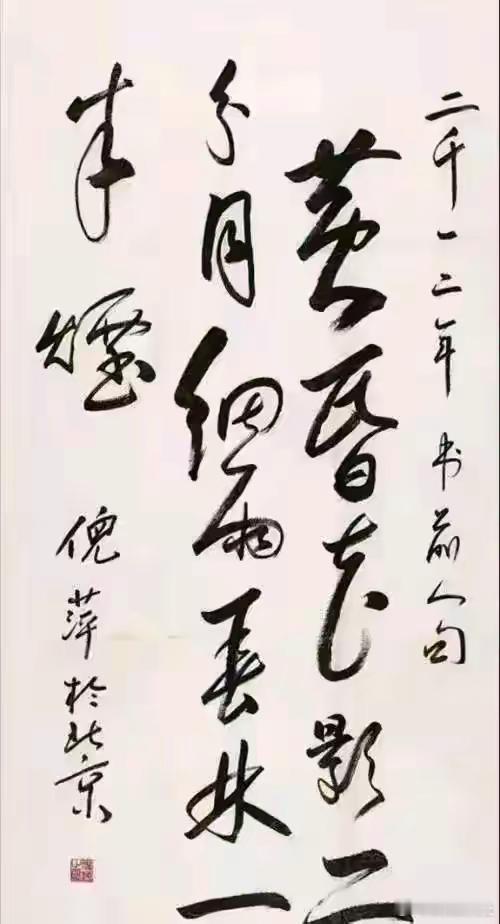 二千一二年 书前人句
黄昏花影二
分月細雨春林一
半煙
倪萍於北京